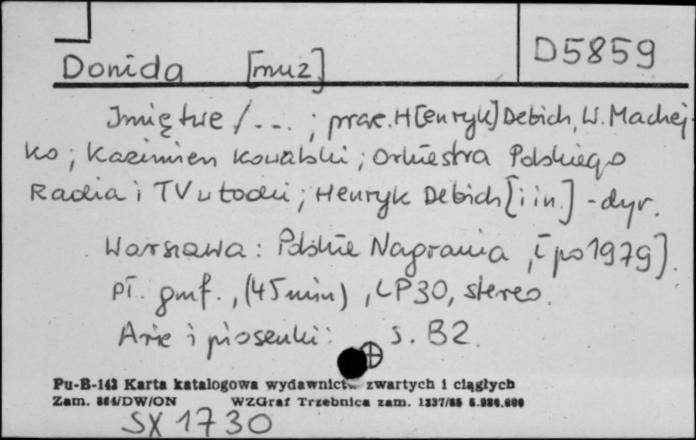 Donida [muz] D5859
Imię twe /...; prac. H[enryk] Debich, W. Machej-
ko; Kazimierz Kowalski; Orkiestra Polskiego
Radia i TV w Łodzi; Henryk Debich [i in.] - dyr.
Warszawa: Polskie Nagrania, [po 1979].
Pł. gmf., (45 min), LP30, stereo.
Arie i piosenki. s. B2.
Pu-B-143 Karta katalogowa wydawnictw zwartych i ciągłych
Zam. 864/DW/ON WZGraf Trzebnica zam. 1337/85 5.000.000
SX 1730